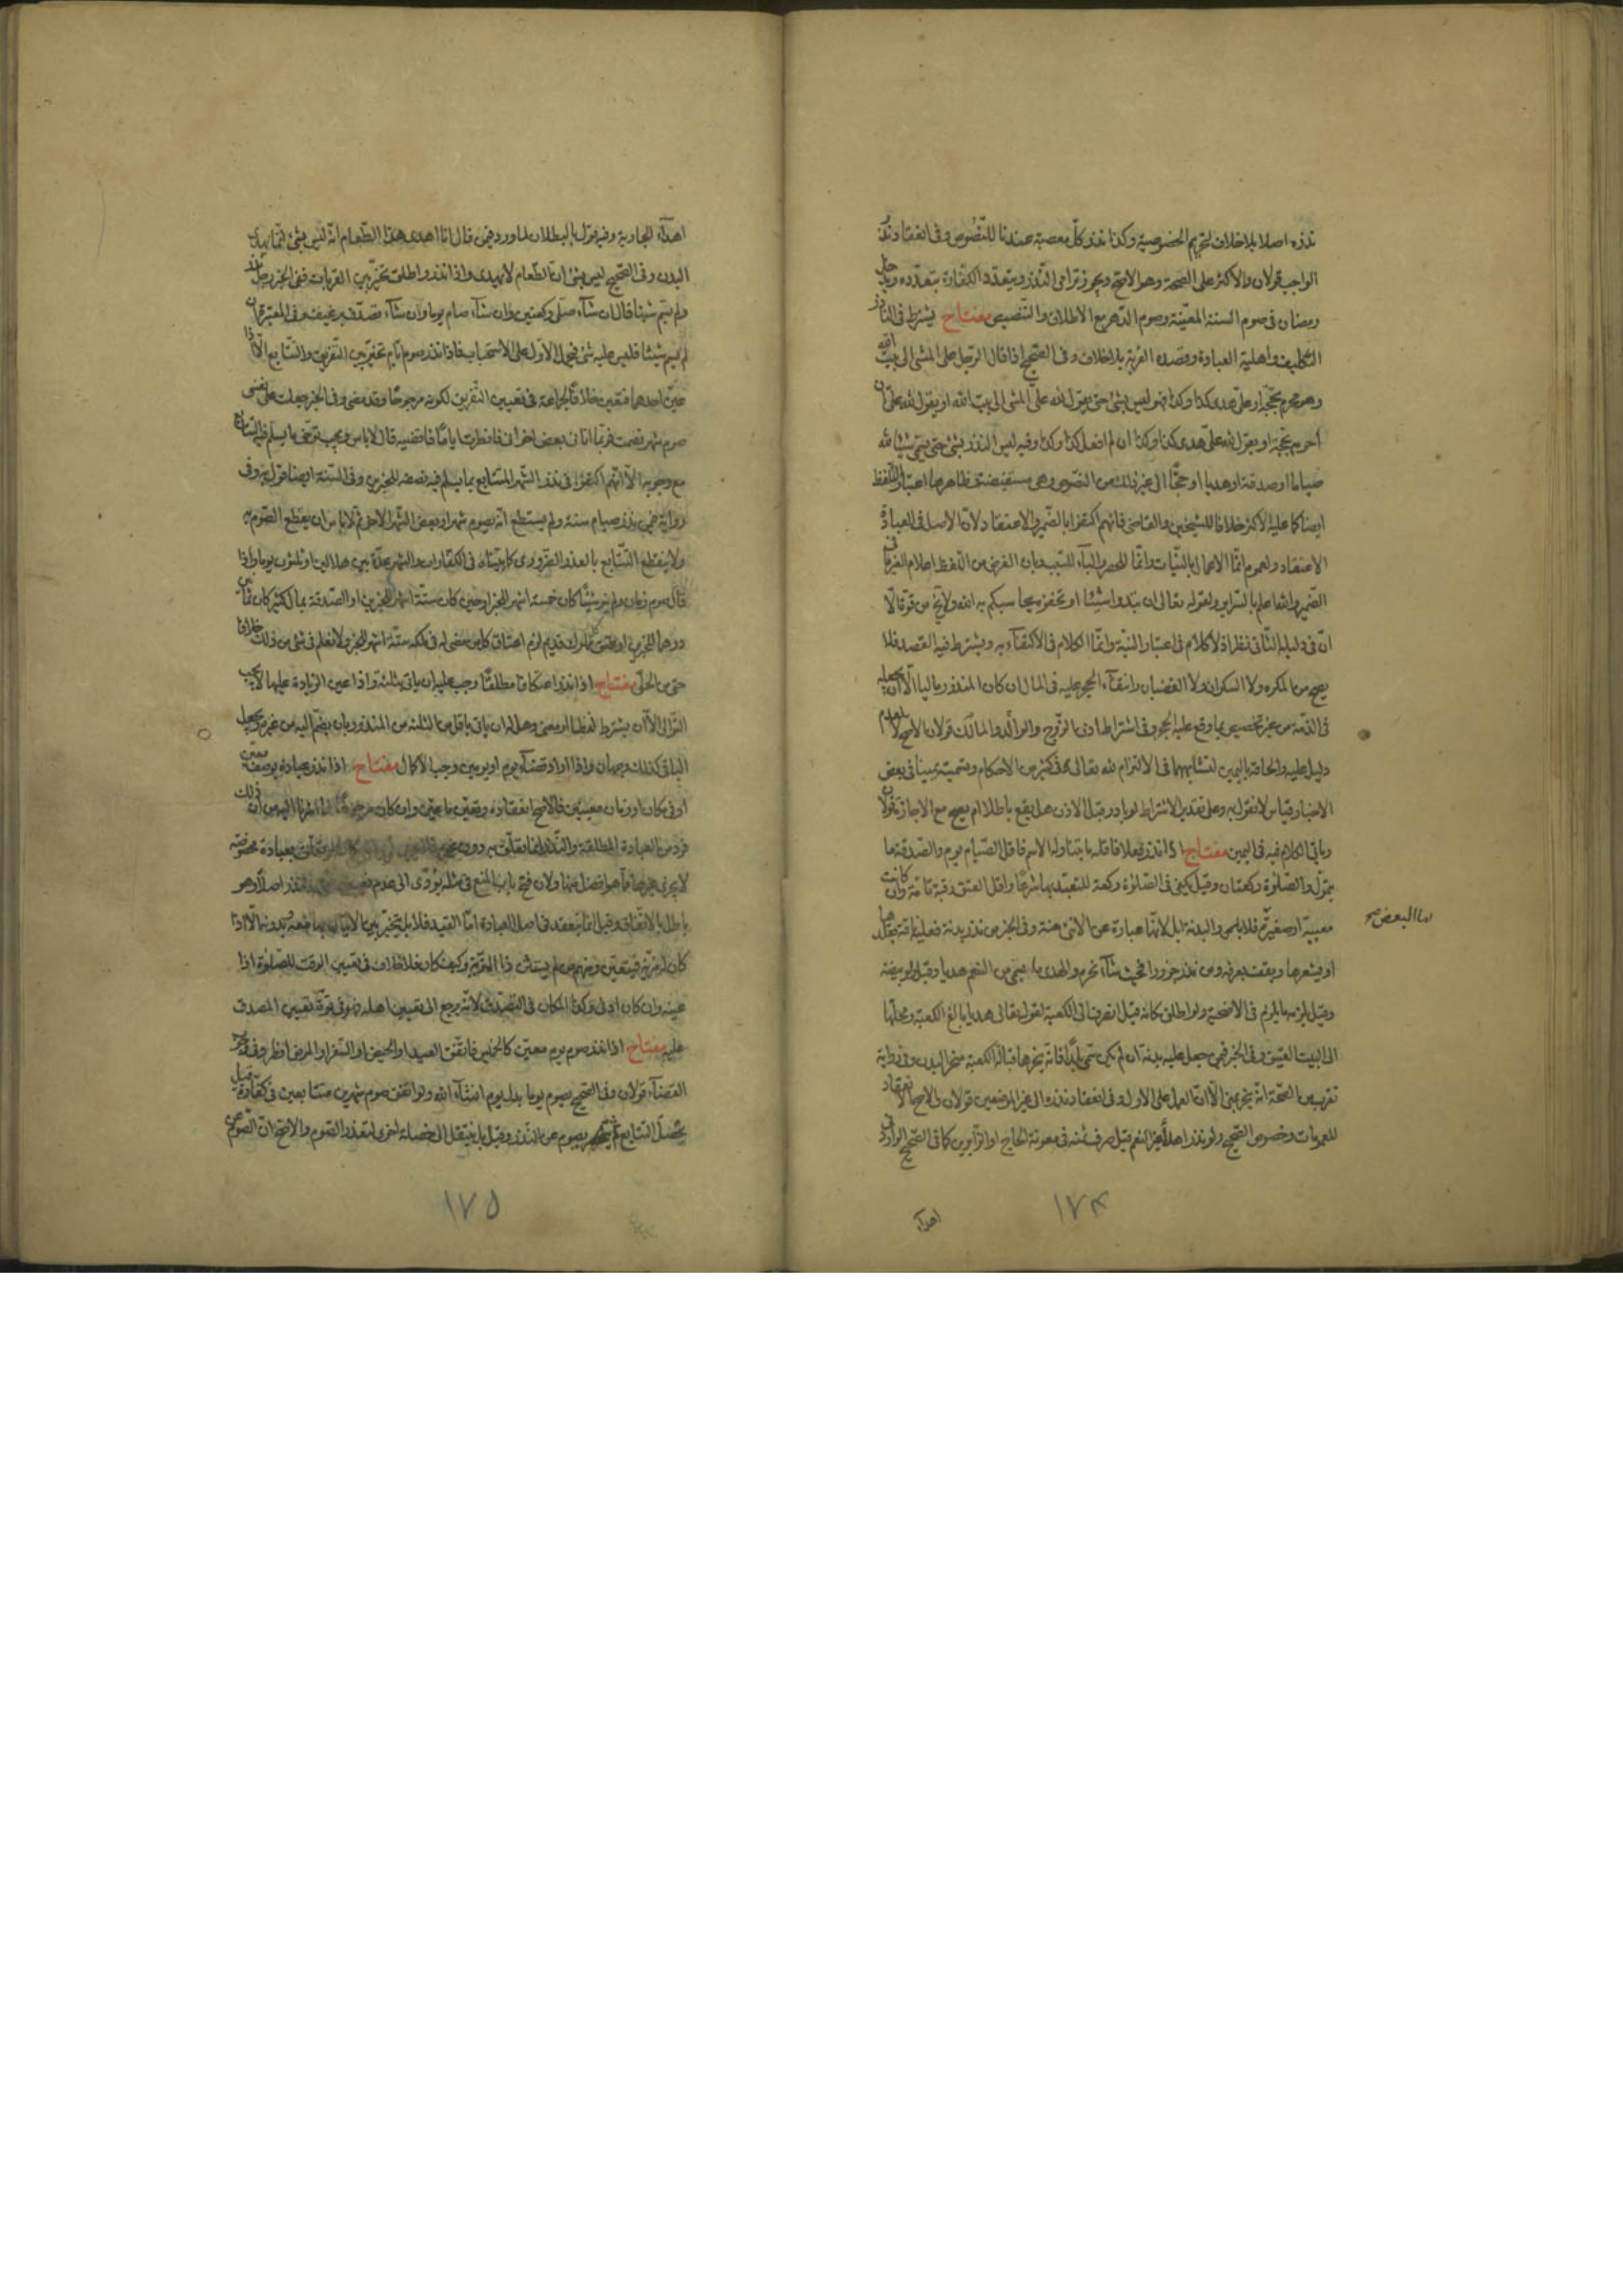 نذره اصلا بلا خلاف لتحريم الخصوصية وكذا نذر كل معصية عندنا للنصوص وفي انعقاد نذر
الواجب قولان والاكثر على الصحة وهو الاصح ويجوز ترامى النذر ويتعدد الكفارة بتعدده ويدخل
رمضان في صوم السنة المعينة وصوم الدهر مع الاطلاق والتخصيص مفتاح يشترط في الناذر
التكليف واهلية العبادة وقصد القربة بلا خلاف وفي الصحيح اذا قال الرجل على المشى الى بيت الله
وهو محرم بحجة او على هدى كذا وكذا فليس بشئ حتى يقول لله على المشى الى بيت الله او يقول لله على ان
احرم بحجة او يقول لله على هدى كذا وكذا ان لم افعل كذا وكذا وفيه ليس النذر بشئ حتى يسمى شيئا لله
صياما او صدقة او هديا او حجا الى غير ذلك من النصوص وهى مستفيضة وظاهرها اعتبار التلفظ
ايضا كما عليه الاكثر خلافا للشيخين والقاضى فانهم اكتفوا بالضمير والاعتقاد لان الاصل في العبادة
الاعتقاد ولعموم انما الاعمال بالنيات وانما للحصر والباء للسبب وبان الغرض من اللفظ اعلام الغير ما في
الضمير والله اعلم بالسراير ولقوله تعالى ان تبدوا شيئا او تخفوه يحاسبكم به الله ولا يخ من قوة الا
ان في دليل الثانى نظرا اذ لا كلام في اعتبار النية وانما الكلام في الاكتفاء به ويشترط فيه القصد فلا
يصح من المكره ولا السكران ولا الغضبان وانتفاء الحجر عليه في المال ان كان المنذور ماليا الا ان يجعله
في الذمة من غير تخصيص بما وقع عليه الحجر وفي اشتراط اذن الزوج والوالد والمالك قولان الاصح لا لعدم
دليل عليه والحاقه باليمين لتشابههما في الالتزام لله تعالى وفي كثير من الاحكام وتسميته يمينا في بعض
الاخبار قياس لا نقول به وعلى تقدير الاشتراط لو بادر قبل الاذن هل يقع باطلا ام يصح مع الاجازة قولان
وياتى الكلام فيه في اليمين مفتاح اذا نذر فعلا فاقله ما يتناوله الاسم فاقل الصيام يوم والصدقة ما
يتمول والصلوة ركعتان وقيل يكفى في الصلوة ركعة للتعبد بها شرعا واقل العتق رقبة تامة وان كانت
معيبة او صغيرة فلا باس والبدنة ابل لانها عبارة عن الانثى منه وفي الخبر من نذر بدنة فعليه ناقة يقلدها
او يشعرها ويقف بعرفة ومن نذر جزورا فحيث شاء نحر والهدى ما يسمى من النعم هديا وقيل ولو بيضة
وقيل يلزمه ما يلزم في الاضحية ولو اطلق مكانه قيل انصرف الى الكعبة لقوله تعالى هديا بالغ الكعبة ومحلها
الى البيت العتيق وفي الخبر فيمن جعل عليه بدنة ان لم يكن سمى بلدا فانه ينحرها قبالة الكعبة منحر البدن وفي رواية
تقرب من الصحة انه ينحر بمنى الا ان العمل على الاول وفي انعقاد نذره الى غير الموضعين قولان والاصح الانعقاد
للعمومات وخصوص الصحيح ولو نذر اهداء غير النعم قيل صرف ثمنه في معونة الحاج او الزايرين كما في الصحيح الوارد في
اما البعض صح
١٧٤
اهداء
اهداء الجارية وفيه قول بالبطلان لما ورد فيمن قال انا اهدى هذا الطعام انه ليس بشئ انما يهدى
البدن وفي الصحيح ليس بشئ ان الطعام لا يهدى واذا نذر واطلق تخير بين القربات ففي الخبر رجل نذر
ولم يسم شيئا قال ان شاء صلى ركعتين وان شاء صام يوما وان شاء تصدق برغيف وفي المعتبرة ان
لم يسم شيئا فليس عليه شئ فيحمل الاول على الاستحباب فاذا نذر صوم ايام تخير بين التفريق والتتابع الا اذا
عين احدهما فيتعين خلافا لجماعة في تعيين التفريق لكونه مرجوحا وقد مضى وفي الخبر جعلت على نفسى
صوم شهر فصمت فربما اتانى بعض اخوانى فافطرت اياما فاقضيه قال لا باس ويجب توخى ما يسلم فيه التتابع
مع وجوبه الا انهم اكتفوا في نذر الشهر المتتابع بما يسلم فيه نصفه للخبرين وفي السنة ايضا قول به وفي
رواية فيمن نذر صيام سنة ولم يستطع انه يصوم شهرا وبعض الشهر الاخر ثم لا باس ان يقطع الصوم
ولا ينقطع التتابع بالعذر الضرورى كما بيناه في الكفارات والشهر عدة بين هلالين او ثلثون يوما واذا
قال صوم زمان ولم ينو شيئا كان خمسة اشهر للخبر او حين كان ستة اشهر للخبرين او الصدقة بمال كثير كان ثمانين
درهما للخبرين او عتق مملوك قديم لزم اعتاق كل من مضى له في ملكه ستة اشهر للخبر ولا نعلم في شئ من ذلك خلافا
حتى من الحلى مفتاح اذا نذر اعتكافا مطلقا وجب عليه ان ياتى بثلثة واذا عين الزيادة عليها لا يجب
التوالى الا ان يشترط لفظا او معنى وهل له ان ياتى باقل من الثلثة من المنذور بان يضم اليه من غيره ويجعل
الباقى كذلك وجهان واذا اراد قضاء يوم او يومين وجب الاكمال مفتاح اذا نذر عبادة بوصف معين
او في مكان او زمان معينين فالاصح انعقاده وتعين ما عين وان كان مرجوحا
فرد من العبادة المطلقة والنذر انما تعلق به دون غيره بعبادة مخصوصة
لا يجزى غيرها مما هو افضل منها ولان فتح باب المنع في مثله يؤدى الى عدم اصلا وهو
باطل بالاتفاق وقيل انما ينعقد في اصل العبادة اما القيد فلا بل يتخير بين الاتيان بها معه وبدونه الا اذا
كان له مزية فيتعين ومنهم من لم يستثن ذا المزية وكيف كان فلا خلاف في تعيين الوقت للصلوة اذا
عينه وان كان ادنى وكذا المكان في التصدق لانه يرجع الى تعيين اهله فهو في قوة تعيين المصدق
عليه مفتاح اذا نذر صوم يوم معين كالخميس فاتفق العيد او الحيض او السفر او المرض افطر وفي وجوب
القضاء قولان وفي الصحيح يصوم يوما بدل يوم انشاء الله ولو اتفق صوم شهرين متتابعين في كفارة قيل
يحصل التتابع ثم يصوم عن النذر وقيل بل ينتقل الى خصلة اخرى لتعذر الصوم والاصح ان الصوم عن
١٧٥